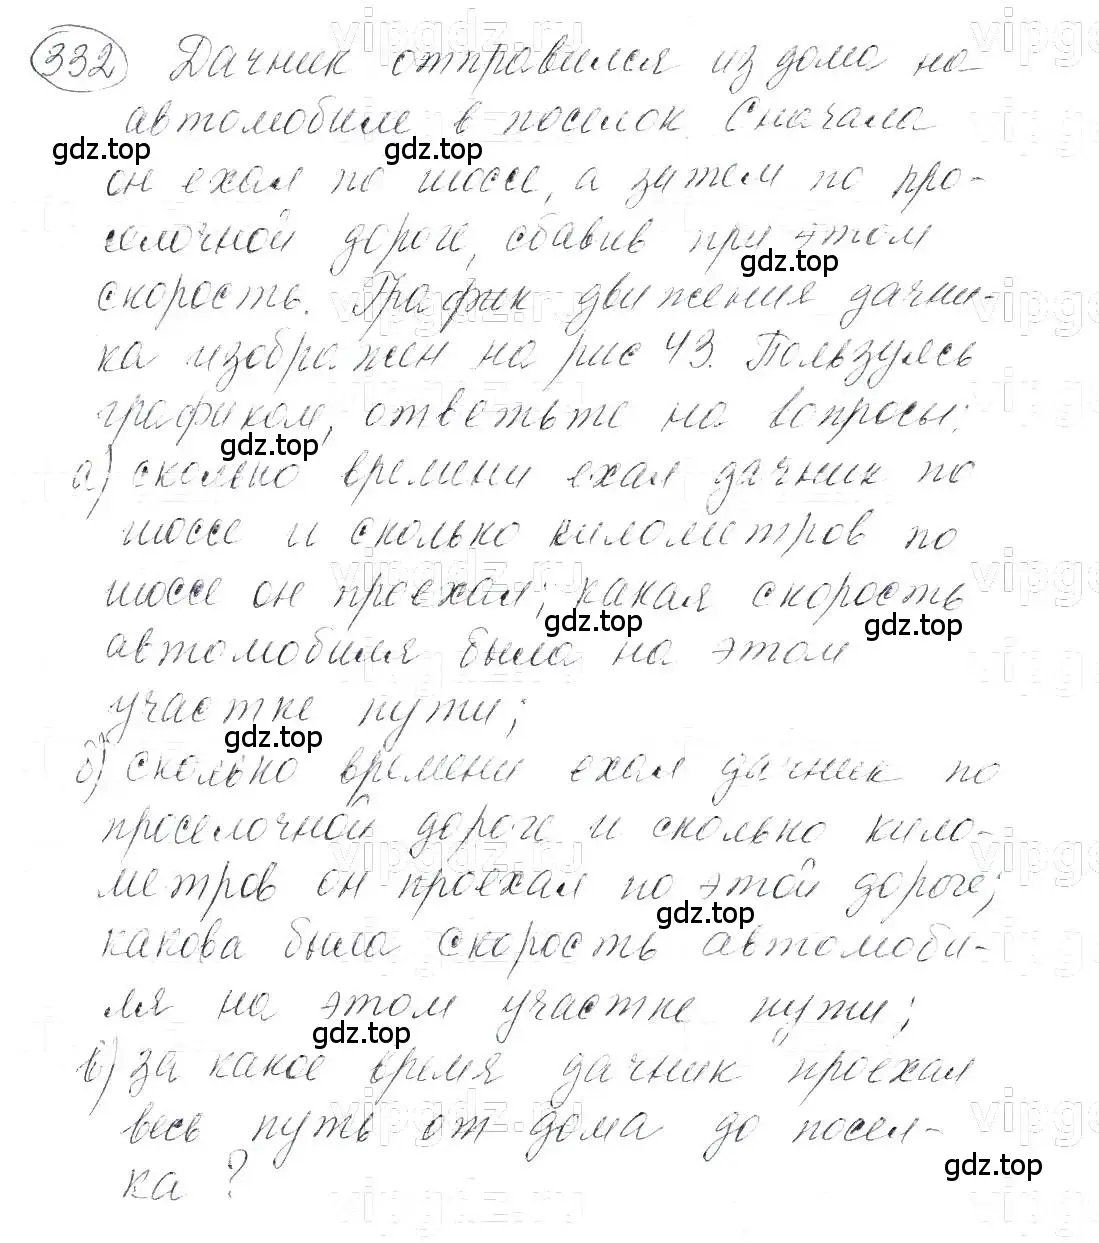 332 Дачник отправился из дома на
автомобиле в поселок. Сначала
он ехал по шоссе, а затем по про-
селочной дороге, сбавив при этом
скорость. График движения дачни-
ка изображен на рис 43. Пользуясь
графиком, ответьте на вопросы:
а) сколько времени ехал дачник по
шоссе и сколько километров по
шоссе он проехал; какая скорость
автомобиля была на этом
участке пути;
б) сколько времени ехал дачник по
проселочной дороге и сколько кило-
метров он проехал по этой дороге;
какова была скорость автомоби-
ля на этом участке пути;
в) за какое время дачник проехал
весь путь от дома до посел-
ка?
gdz.top
gdz.top
gdz.top
gdz.top
gdz.top
gdz.top
gdz.top
gdz.top
gdz.top
gdz.top
vipgdz.ru
vipgdz.ru
vipgdz.ru
vipgdz.ru
vipgdz.ru